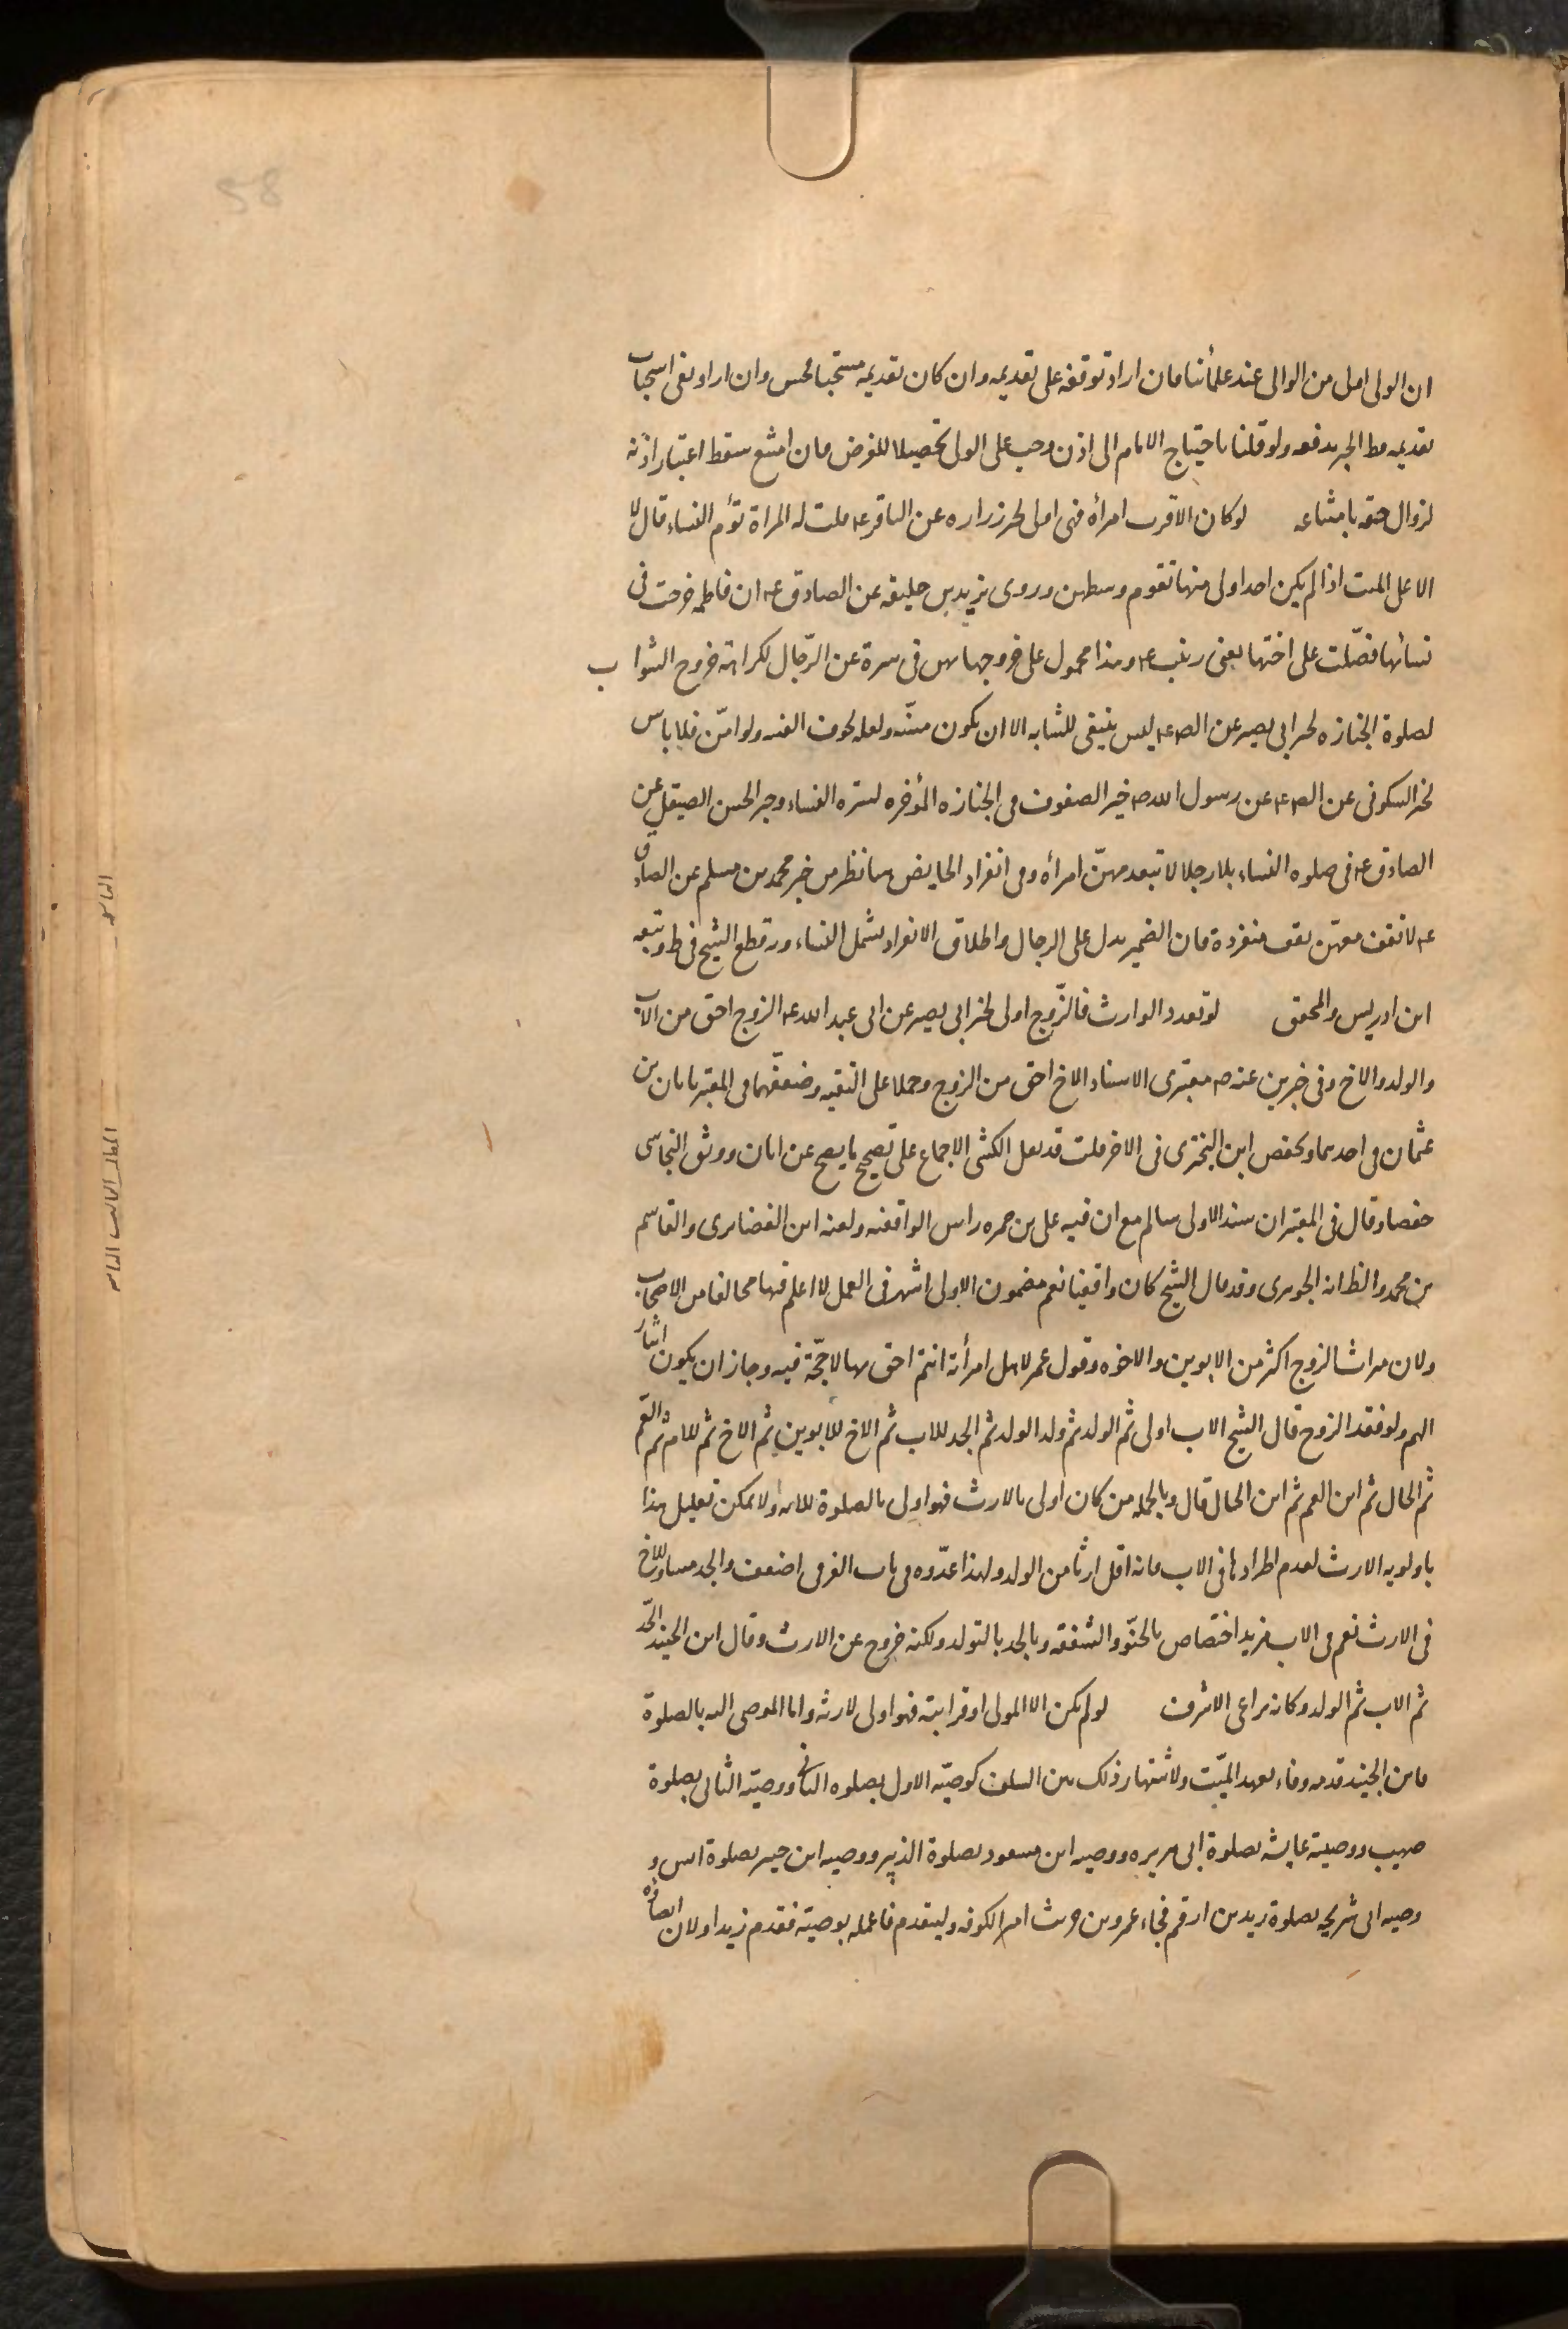 58
ان الولى اولى من الوالى عند علمائنا فان اراد توقفه على تقديمه وان كان تقديمه مستحبا فحسن وان اراد نفى استحباب
تقديمه فظ الخبر يدفعه ولو قلنا باحتياج الامام الى اذن وجب على الولى تحصيلا للغرض فان امتنع سقط اعتبار اذنه
لزوال حقه بامتناعه لو كان الاقرب امرأه فهى اولى لخبر زراره عن الباقر عه قلت له المراة تؤم النساء قال لا
الا على الميت اذا لم يكن احد اولى منها تقوم وسطهن وروى يزيد بن خليفه عن الصادق عه ان فاطمه خرجت فى
نسائها فصلّت على اختها يعنى زينب عه وهذا محمول على خروجهما هى فى سترة عن الرّجال لكراهة خروج الشواب
لصلوة الجنازه لخبر ابى بصير عن الص عه ليس ينبغى للشابه الا ان تكون مسنّه ولعله لخوف الفتنه ولو امن فلا باس
لخبر السكونى عن الص عه عن رسول الله ص خير الصفوف فى الجنازه المؤخره لستره النساء وخبر الحسن الصيقل عن
الصادق عه فى صلوه النساء بلا رجل لا تتقدمهنّ امرأه وفى انفراد الحايض هنا نظر من خبر محمد بن مسلم عن الصادق
عه لا تقف معهم تقف منفردة فان الضمير يدل على الرجال واطلاق الانفراد يشمل النساء وبه قطع الشيخ فى ط وتبعه
ابن ادريس والمحقق لو تعدد الوارث فالزّوج اولى لخبر ابى بصير عن ابى عبد الله عه الزوج احق من الاب
والولد والاخ وفى خبرين عنه ص معتبرى الاسناد الاخ احق من الزوج وحملا على التقيه وضعفّهما فى المعتبر بابان بن
عثمان فى احدهما وبحفص ابن البخترى فى الاخر قلت قد نقل الكشى الاجماع على تصحيح ما يصح عن ابان ووثق النجاشى
حفصا وقال فى المعتبر ان سند الاولى سالم مع ان فيه على بن حمزه راس الواقفه ولعنه ابن الغضايرى والقاسم
بن محمد والظ انه الجوهرى وقد قال الشيخ كان واقفيا نعم مضمون الاولى اشهر فى العمل لا اعلم فيها مخالفا من الاصحاب
ولان ميراث الزوج اكثر من الابوين والاخوه وقول عمر لاهل امرأته انتم احق بها لا حجّة فيه وجاز ان يكون ايثار
الهم ولو فقد الزوج قال الشيخ الاب اولى ثم الولد ثم ولد الولد ثم الجد للاب ثم الاخ للابوين ثم الاخ ثم للام ثم العم
ثم الخال ثم ابن العم ثم ابن الخال قال وبالجمله من كان اولى بالارث فهو اولى بالصلوة للايه ولا يمكن تعليل هذا
باولويه الارث لعدم اطرادها فى الاب فانه اقل ارثا من الولد ولهذا عدّوه فى باب الفرض اضعف والجد مساو للاخ
فى الارث نعم فى الاب مزيد اختصاص بالحنّو والشفقه وبالجد بالتولد ولكنه خروج عن الارث وقال ابن الجنيد الجّد
ثم الاب ثم الولد وكانه يراعى الاشرف لو لم يكن الا المولى او قرابته فهو اولى لارثه واما الموصى اليه بالصلوة
فابن الجنيد قدمه وفاء بعهد الميّت ولاشتهار ذلك من السلف كوصيّه الاول بصلوه الثانى ووصيّه الثانى بصلوة
صهيب ووصية عايشه بصلوة ابى هريره ووصيه ابن مسعود بصلوة الزبير ووصيه ابن جبير بصلوة انس و
وصيه ابى شريحه بصلوة زيد بن ارقم فجاء عمرو بن حريث امير الكوفه وليتقدم فاعمله بوصيّه فقدم زيدا ولان ايصائه